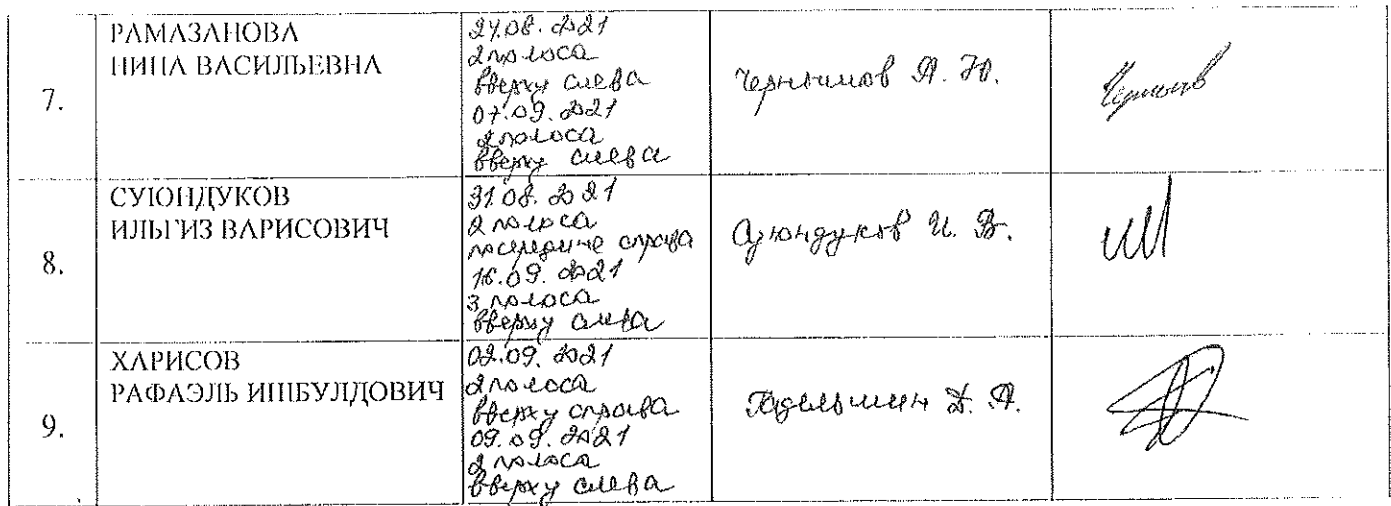 7.
РАМАЗАНОВА
НИНА ВАСИЛЬЕВНА
24.08.2021
2 полоса
вверху слева
07.09.2021
2 полоса
вверху слева
А. Ю.
8.
СУЮНДУКОВ
ИЛЬГИЗ ВАРИСОВИЧ
31.08.2021
2 полоса
посередине справа
16.09.2021
3 полоса
вверху слева
Суюндуков И. В.
9.
ХАРИСОВ
РАФАЭЛЬ ИШБУЛДОВИЧ
02.09.2021
2 полоса
вверху справа
09.09.2021
2 полоса
вверху слева
Гадельшин Д. А.